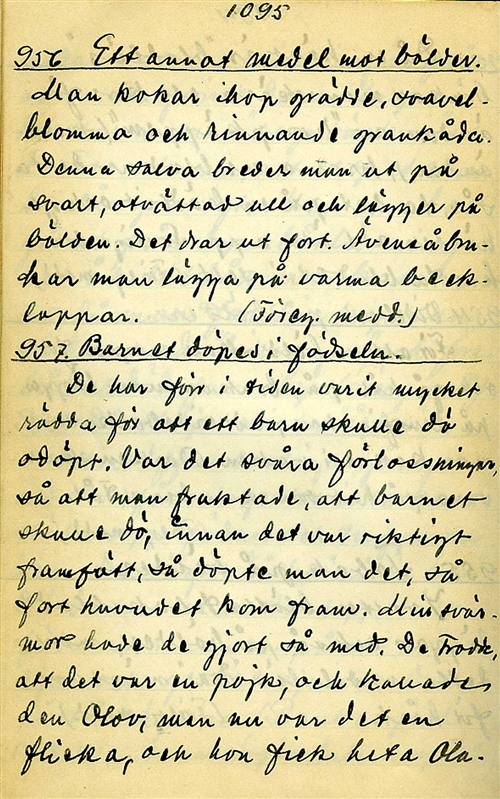 1095
956 Ett annat medel mot bölder.
Man kokar ihop grädde, svavel-
blomma och rinnande grankåda.
Denna salva breder man ut på
svart, otvättad ull och lägger på
bölden. Det drar ut fort. Ävenså bru-
kar man lägga på varma beck-
lappar. (Föreg. medd.)
957. Barnet döpes i födseln.
De har förr i tiden varit mycket
rädda för att ett barn skulle dö
odöpt. Var det svåra förlossningar,
så att man fruktade, att barnet
skulle dö, innan det var riktigt
framfött, så döpte man det, så
fort huvudet kom fram. Min svär-
mor hade de gjort så med. De trodde,
att det var en pojk, och kallade
den Olov, men nu var det en
flicka, och hon fick heta Ola-